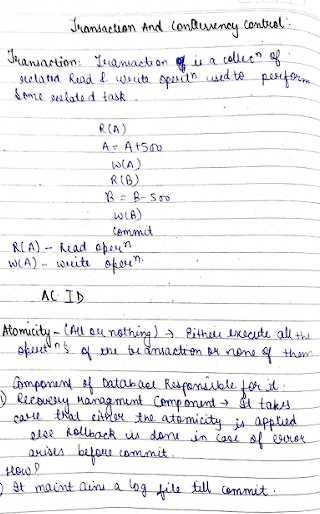 Transaction And Concurrency control:
Transaction: Transaction is a collecn of
related Read & write opertn used to perform
some related task.
R(A)
A = A+500
W(A)
R(B)
B = B-500
W(B)
Commit
R(A) – Read opern
W(A) – write opern.
ACID
Atomicity – (All or nothing) → Either execute all the
opertns of the transaction or none of them
Component of Database Responsible for it:
Recovery managment Component → It takes
care that either the atomicity is applied
else Rollback is done in case of error
arises before commit.
How?
It maintains a log file till commit.